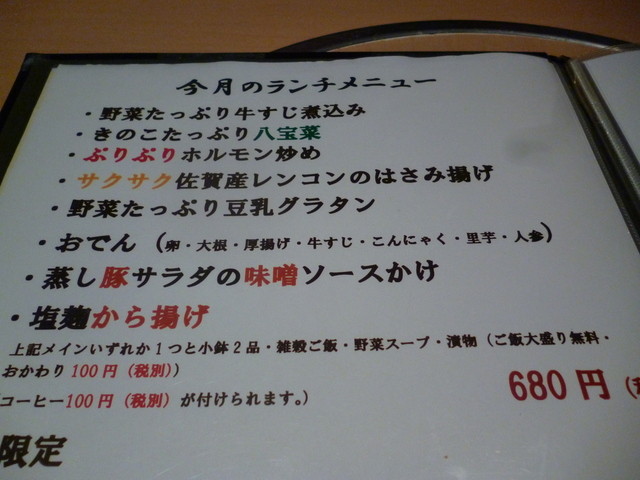 今月のランチメニュー
・野菜たっぷり牛すじ煮込み
・きのこたっぷり八宝菜
・ぷりぷりホルモン炒め
・サクサク佐賀産レンコンのはさみ揚げ
・野菜たっぷり豆乳グラタン
・おでん（卵・大根・厚揚げ・牛すじ・こんにゃく・里芋・人参）
・蒸し豚サラダの味噌ソースかけ
・塩麹から揚げ
上記メインいずれか1つと小鉢2品・雑穀ご飯・野菜スープ・漬物（ご飯大盛り無料・
おかわり100円（税別））
680円
コーヒー100円（税別）が付けられます。）
限定